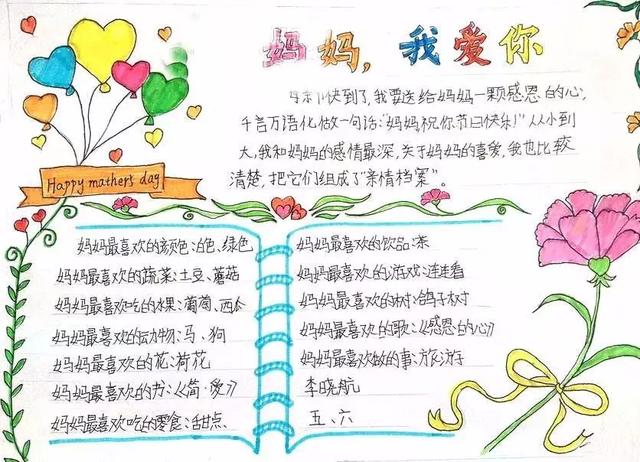 妈妈，我爱你
快到了，我要送给妈妈一颗感恩的心，
千言万语化做一句话：“妈妈祝你节日快乐！”从小到
大，我和妈妈的感情最深，关于妈妈的喜爱，我也比较
清楚，把它们组成了“亲情档案”。
Happy mathers day
妈妈最喜欢的颜色：白色、绿色
妈妈最喜欢的蔬菜：土豆、蘑菇
妈妈最喜欢吃的水果：葡萄、西瓜
妈妈最喜欢的动物：马、狗
妈妈最喜欢的花：荷花
妈妈最喜欢的书：《简·爱》
妈妈最喜欢吃的零食：甜点
妈妈最喜欢的饮品：茶
妈妈最喜欢的游戏：连连看
妈妈最喜欢的树：鸽子树
妈妈最喜欢的歌：《感恩的心》
妈妈最喜欢做的事：旅游
李晓航
五、六